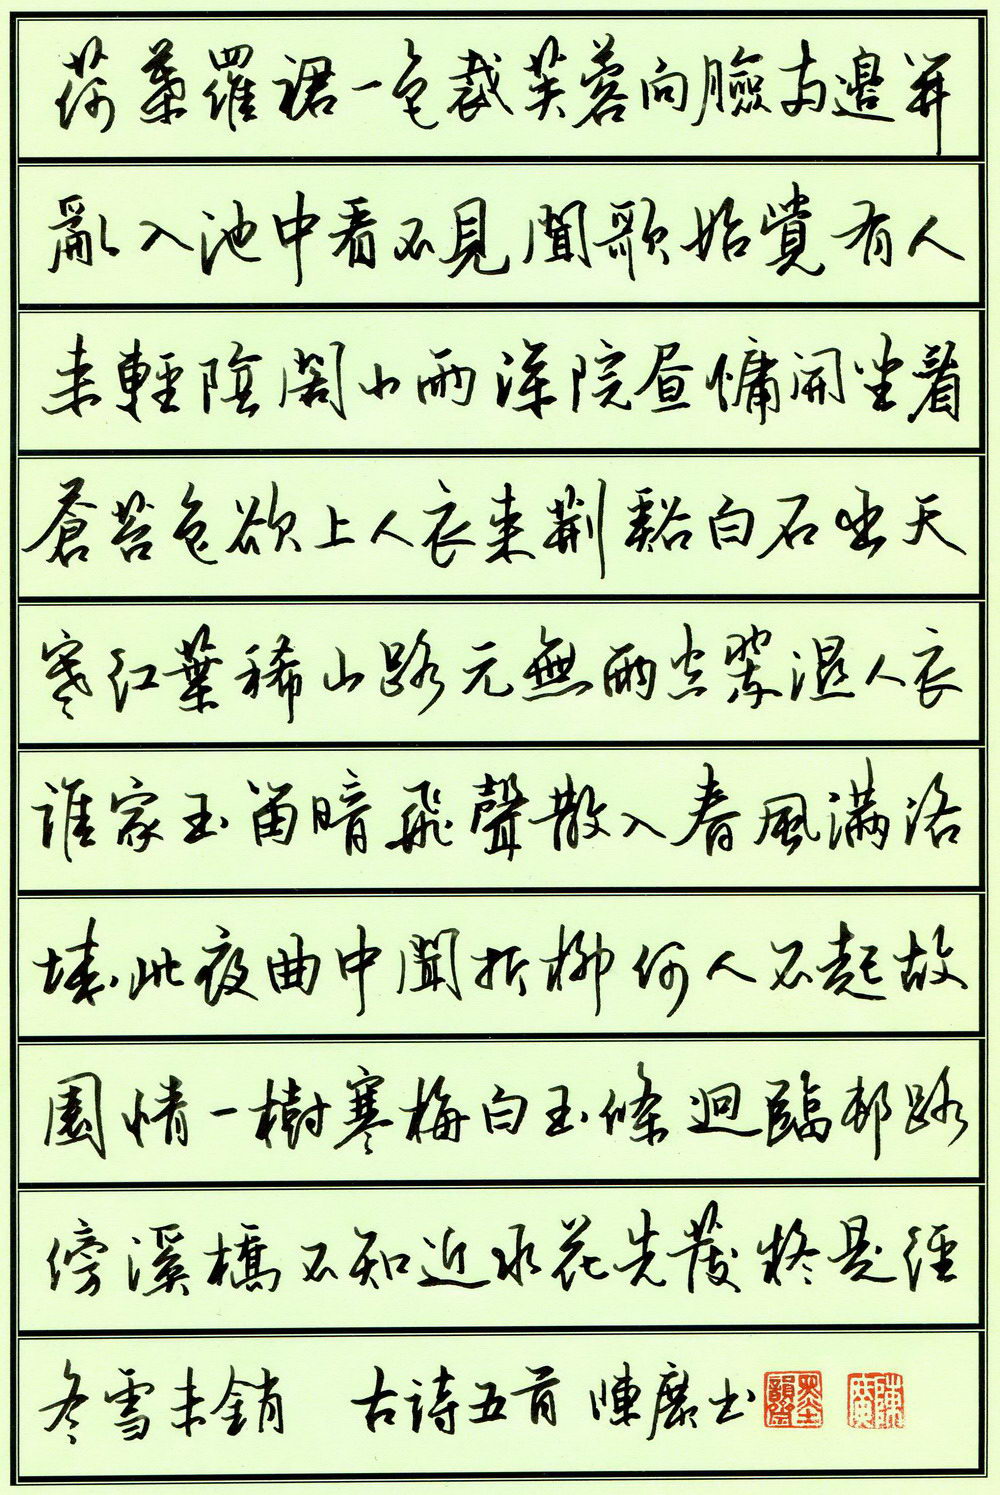 荷葉羅裙一色裁芙蓉向臉兩邊開
亂入池中看不見聞歌始覺有人
來輕陰閣小雨深院昼慵開坐看
蒼苔色欲上人衣来荆谿白石出天
寒红葉稀山路元無雨空翠濕人衣
誰家玉笛暗飛聲散入春風满洛
城此夜曲中聞折柳何人不起故
園情一樹寒梅白玉條迥臨邨路
傍溪橋不知近水花先發疑是經
冬雪未銷 古詩五首 陳慶书